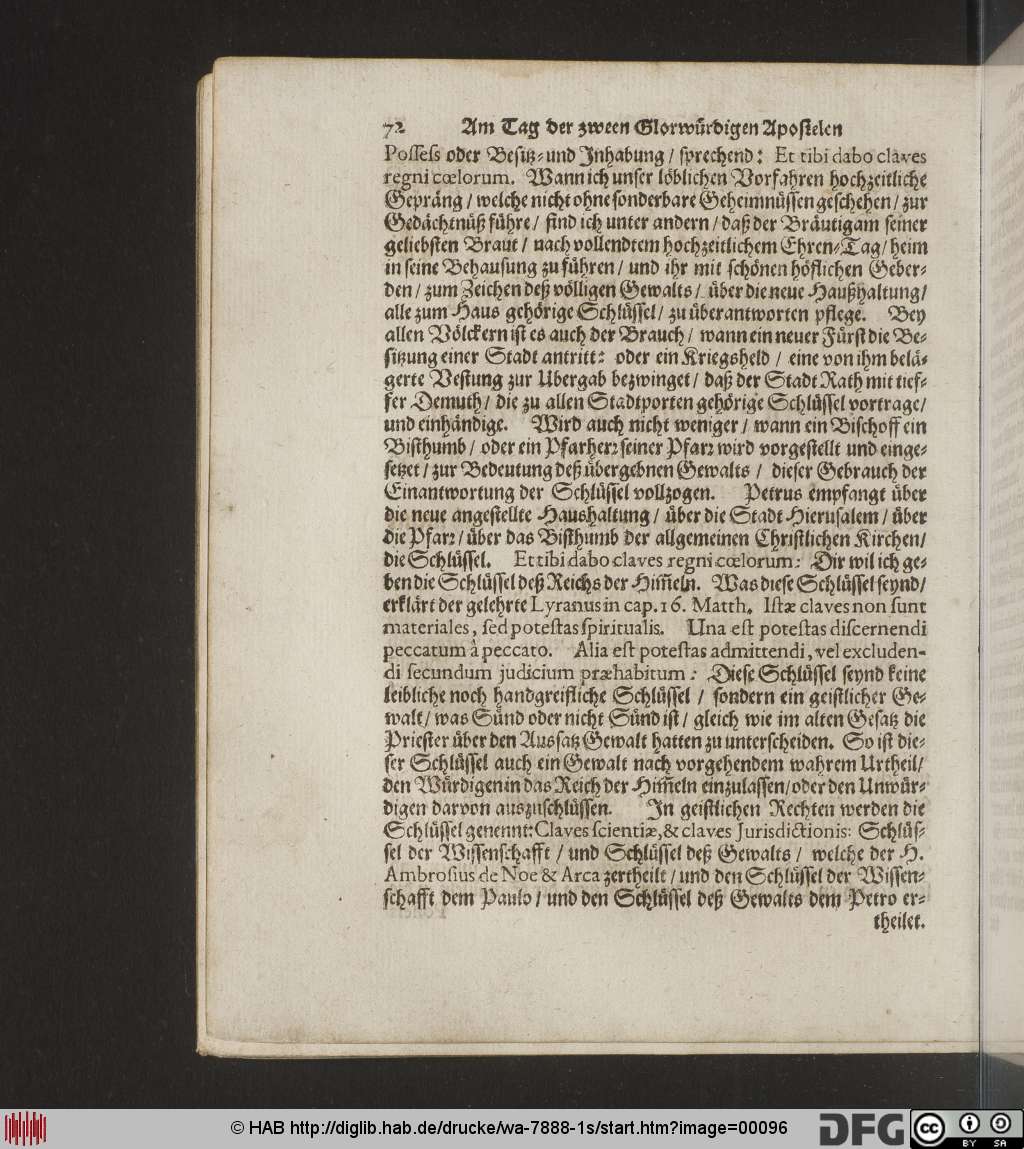 72 Am Tag der zween Glorwürdigen Apostelen
Possess oder Besitz- und Inhabung / sprechend: Et tibi dabo claves
regni cœlorum. Wann ich unser löblichen Vorfahren hochzeitliche
Gepräng / welche nicht ohne sonderbare Geheimnüssen geschehen / zur
Gedächtnüß führe / find ich unter andern / daß der Bräutigam seiner
geliebsten Braut / nach vollendtem hochzeitlichem Ehren-Tag / heim
in seine Behausung zu führen / und ihr mit schönen höflichen Geber-
den / zum Zeichen deß völligen Gewalts / über die neue Haußhaltung /
alle zum Haus gehörige Schlüssel / zu überantworten pflege. Bey
allen Völckern ist es auch der Brauch / wann ein neuer Fürst die Be-
sitzung einer Stadt antritt: oder ein Kriegsheld / eine von ihm belä-
gerte Vestung zur Ubergab bezwinget / daß der Stadt Rath mit tief-
fer Demuth / die zu allen Stadtporten gehörige Schlüssel vortrage /
und einhändige. Wird auch nicht weniger / wann ein Bischoff ein
Bisthumb / oder ein Pfarherr seiner Pfarr wird vorgestellt und einge-
setzet / zur Bedeutung deß übergebnen Gewalts / dieser Gebrauch der
Einantwortung der Schlüssel vollzogen. Petrus empfangt über
die neue angestellte Haushaltung / über die Stadt Hierusalem / über
die Pfarr / über das Bisthumb der allgemeinen Christlichen Kirchen /
die Schlüssel. Et tibi dabo claves regni cœlorum: Dir wil ich ge-
ben die Schlüssel deß Reichs der Him̃eln. Was diese Schlüssel seynd /
erklärt der gelehrte Lyranus in cap. 16. Matth. Istæ claves non sunt
materiales, sed potestas spiritualis. Una est potestas discernendi
peccatum â peccato. Alia est potestas admittendi, vel excluden-
di secundum judicium præhabitum: Diese Schlüssel seynd keine
leibliche noch handgreifliche Schlüssel / sondern ein geistlicher Ge-
walt / was Sünd oder nicht Sünd ist / gleich wie im alten Gesatz die
Priester über den Aussatz Gewalt hatten zu unterscheiden. So ist die-
ser Schlüssel auch ein Gewalt nach vorgehendem wahrem Urtheil /
den Würdigen in das Reich der Him̃eln einzulassen / oder den Unwür-
digen darvon auszuschlüssen. In geistlichen Rechten werden die
Schlüssel genennt: Claves scientiæ, & claves Jurisdictionis: Schlüs-
sel der Wissenschafft / und Schlüssel deß Gewalts / welche der H.
Ambrosius de Noe & Arca zertheilt / und den Schlüssel der Wissen-
schafft dem Paulo / und den Schlüssel deß Gewalts dem Petro er-
theilet.
© HAB http://diglib.hab.de/drucke/wa-7888-1s/start.htm?image=00096
DFG
cc BY SA